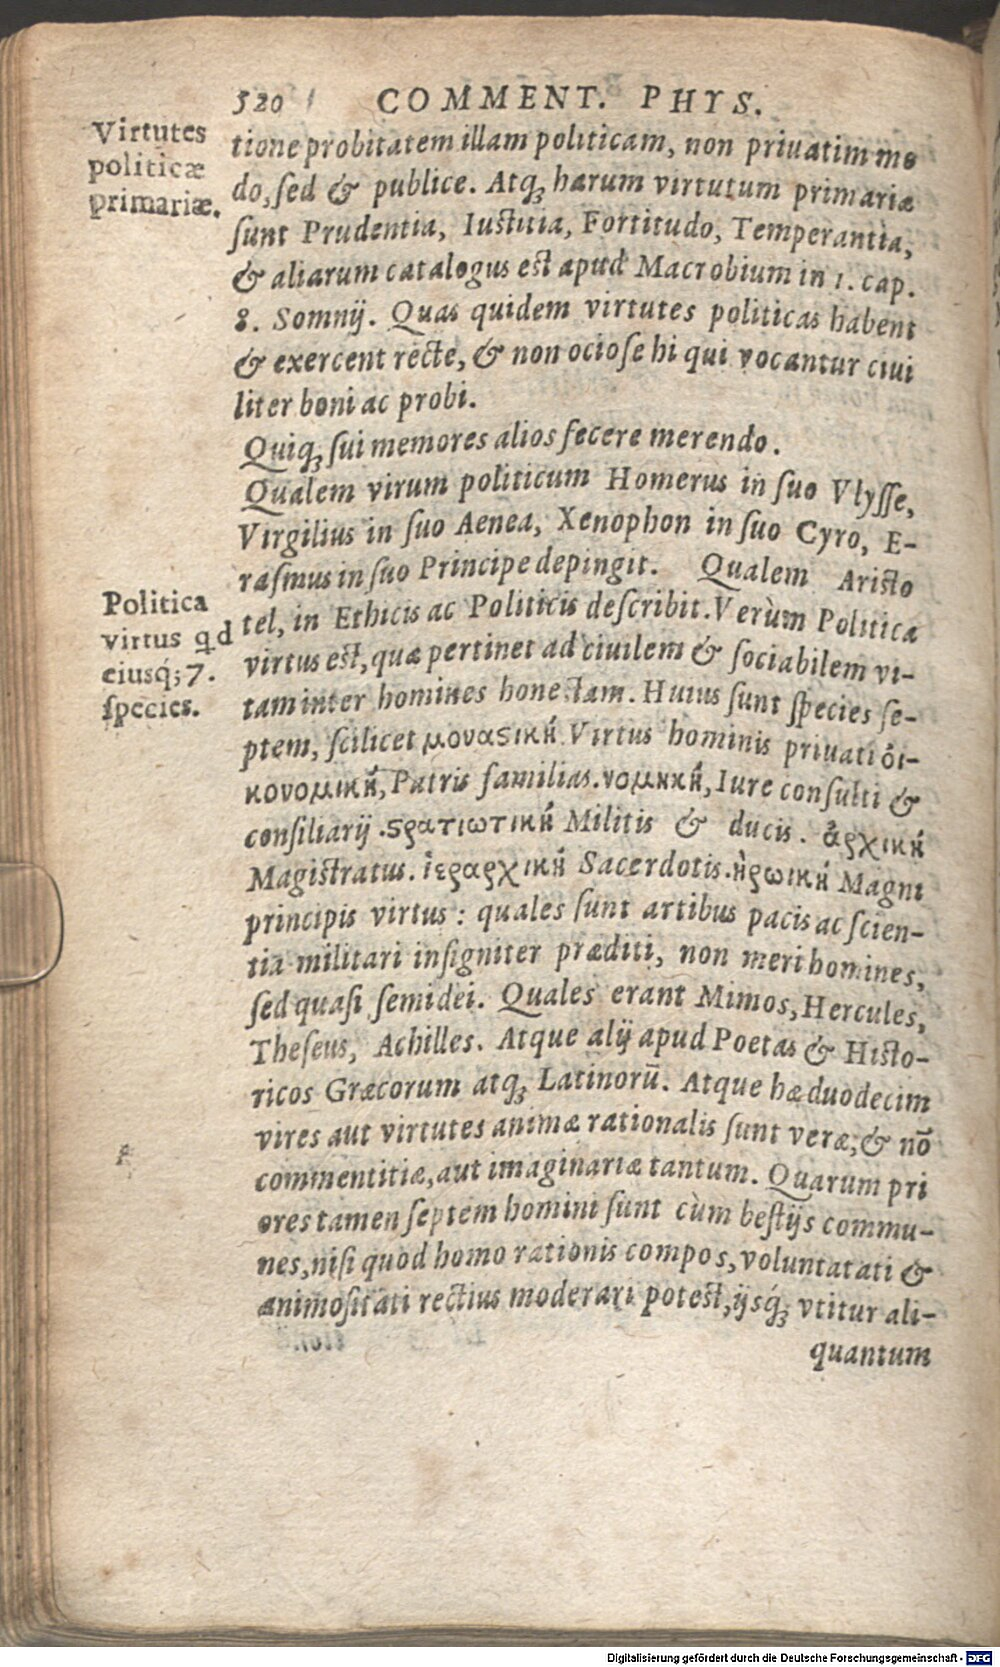 520 COMMENT. PHYS.
Virtutes
politicæ
primariæ.
tione probitatem illam politicam, non priuatim mo
do, sed & publice. Atq; harum virtutum primariæ
sunt Prudentia, Iustitia, Fortitudo, Temperantia,
& aliarum catalogus est apud Macrobium in 1. cap.
8. Somnij. Quas quidem virtutes politicas habent
& exercent recte, & non ociose hi qui vocantur ciui
liter boni ac probi.
Quiq; sui memores alios fecere merendo.
Qualem virum politicum Homerus in suo Vlysse,
Virgilius in suo Aenea, Xenophon in suo Cyro, E-
rasmus in suo Principe depingit. Qualem Aristo
Politica
virtus qd
eiusq́; 7.
species.
tel, in Ethicis ac Politicis describit. Verùm Politica
virtus est, quæ pertinet ad ciuilem & sociabilem vi-
tam inter homines honestam. Huius sunt species se-
ptem, scilicet μοναϛική. Virtus hominis priuati ὀι-
κονομική, Patris familias. νομικκή, Iure consulti &
consiliarij. ϛρατιωτική Militis & ducis. ἀρχική
Magistratus. ἱεραρχική Sacerdotis. ἡρωική Magni
principis virtus: quales sunt artibus pacis ac scien-
tia militari insigniter præditi, non meri homines,
sed quasi semidei. Quales erant Mimos, Hercules,
Theseus, Achilles. Atque alij apud Poetas & Histo-
ricos Græcorum atq; Latinorū. Atque hæ duodecim
vires aut virtutes animæ rationalis sunt veræ, & nō
commentitiæ, aut imaginariæ tantum. Quarum pri
ores tamen septem homini sunt cùm bestijs commu-
nes, nisi quod homo rationis compos, voluntatati &
animositati rectius moderari potest, ijsq́; vtitur ali-
quantum
Digitalisierung gefördert durch die Deutsche Forschungsgemeinschaft - DFG